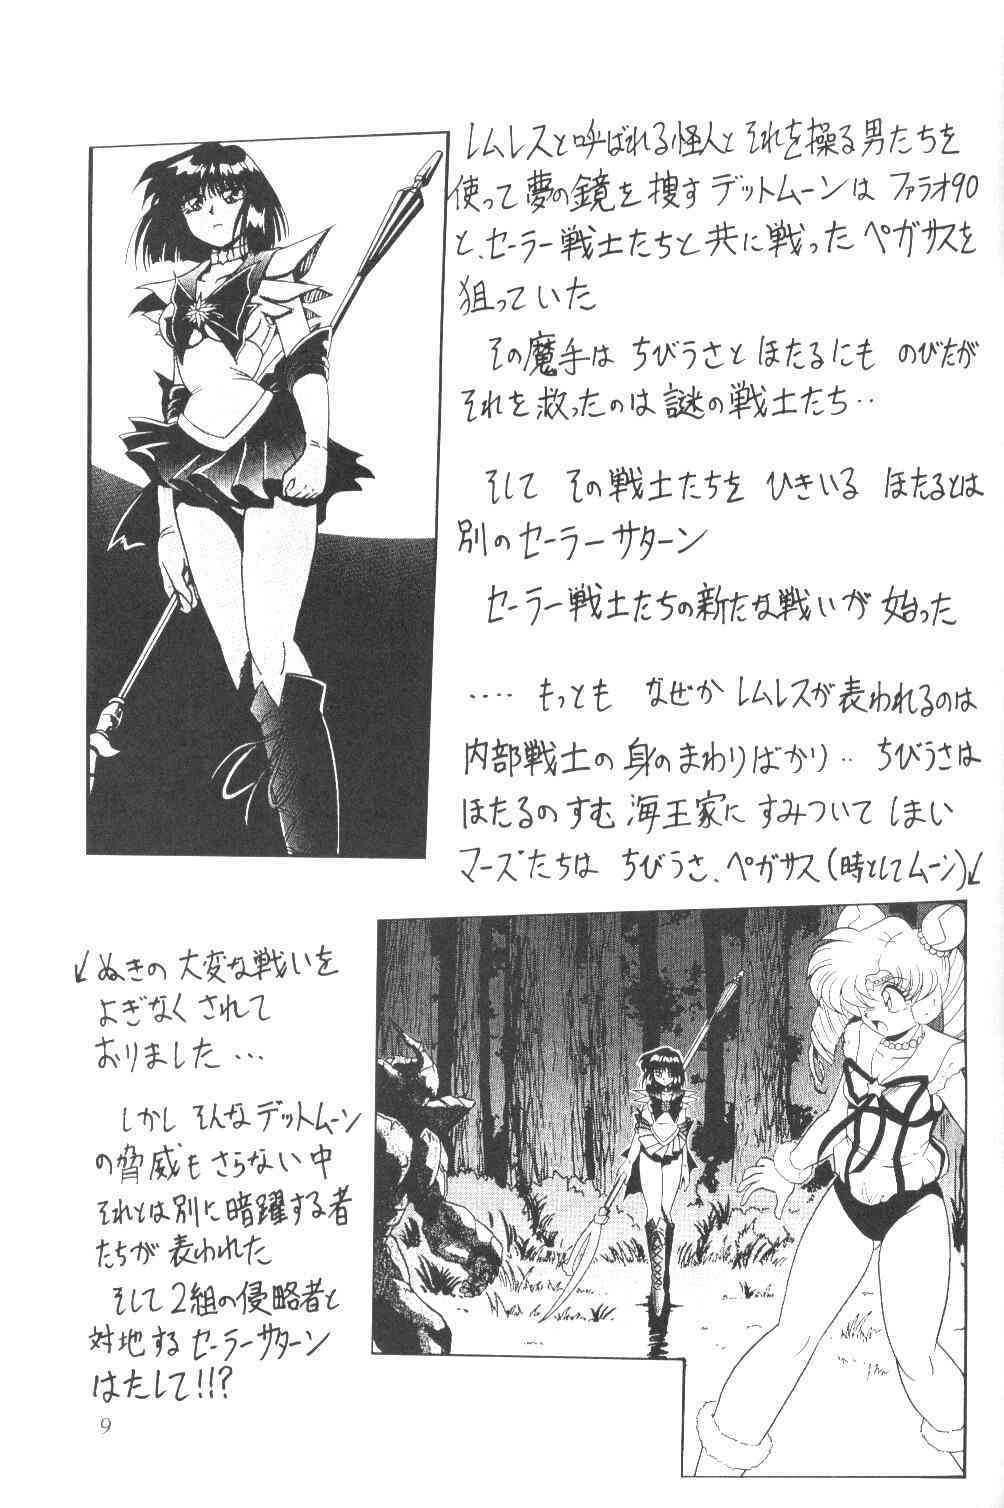 レムレスと呼ばれる怪人とそれを操る男たちを
使って夢の鏡を捜すデットムーンはファラオ90
と、セーラー戦士たちと共に戦ったペガサスを
狙っていた
その魔手はちびうさとほたるにものびたが
それを救ったのは謎の戦士たち‥
そしてその戦士たちをひきいるほたるとは
別のセーラーサターン
セーラー戦士たちの新たな戦いが始った
‥‥もっともなぜかレムレスが表われるのは
内部戦士の身のまわりばかり‥ちびうさは
ほたるのすむ海王家にすみついてしまい
マーズたちはちびうさ、ペガサス(時としてムーン)↙
↙ぬきの大変な戦いを
よぎなくされて
おりました…
しかしそんなデットムーン
の脅威もさらない中
それとは別に暗躍する者
たちが表われた
そして2組の侵略者と
対地するセーラーサターン
はたして!!?
9